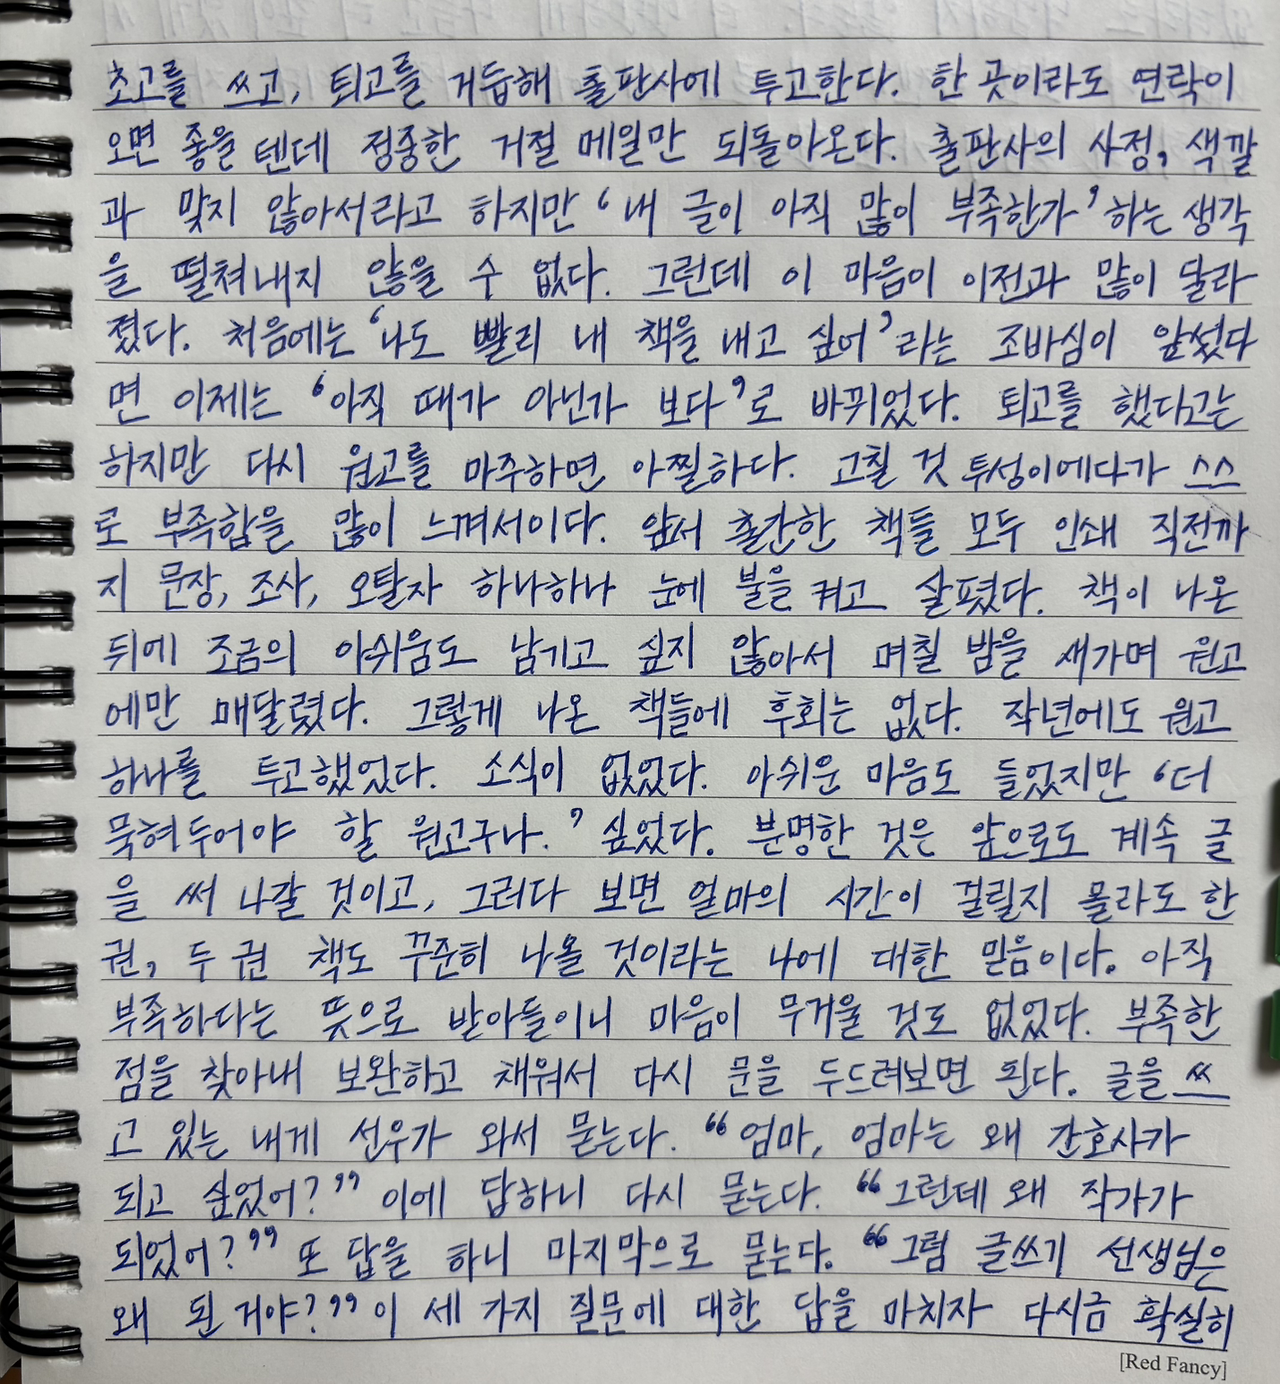 초고를 쓰고, 퇴고를 거듭해 출판사에 투고한다. 한 곳이라도 연락이
오면 좋을 텐데 정중한 거절 메일만 되돌아온다. 출판사의 사정, 색깔
과 맞지 않아서라고 하지만 ‘내 글이 아직 많이 부족한가’ 하는 생각
을 떨쳐내지 않을 수 없다. 그런데 이 마음이 이전과 많이 달라
졌다. 처음에는 ‘나도 빨리 내 책을 내고 싶어’라는 조바심이 앞섰다
면 이제는 ‘아직 때가 아닌가 보다’로 바뀌었다. 퇴고를 했다고는
하지만 다시 원고를 마주하면 아찔하다. 고칠 것 투성이에다가 스스
로 부족함을 많이 느껴서이다. 앞서 출간한 책들 모두 인쇄 직전까
지 문장, 조사, 오탈자 하나하나 눈에 불을 켜고 살폈다. 책이 나온
뒤에 조금의 아쉬움도 남기고 싶지 않아서 며칠 밤을 새가며 원고
에만 매달렸다. 그렇게 나온 책들에 후회는 없다. 작년에도 원고
하나를 투고했었다. 소식이 없었다. 아쉬운 마음도 들었지만 ‘더
묵혀두어야 할 원고구나.’ 싶었다. 분명한 것은 앞으로도 계속 글
을 써 나갈 것이고, 그러다 보면 얼마의 시간이 걸릴지 몰라도 한
권, 두 권 책도 꾸준히 나올 것이라는 나에 대한 믿음이다. 아직
부족하다는 뜻으로 받아들이니 마음이 무거울 것도 없었다. 부족한
점을 찾아내 보완하고 채워서 다시 문을 두드려보면 된다. 글을 쓰
고 있는 내게 선우가 와서 묻는다. “엄마, 엄마는 왜 간호사가
되고 싶었어?” 이에 답하니 다시 묻는다. “그런데 왜 작가가
되었어?” 또 답을 하니 마지막으로 묻는다. “그럼 글쓰기 선생님은
왜 된 거야?” 이 세 가지 질문에 대한 답을 마치자 다시금 확실히
[Red Fancy]